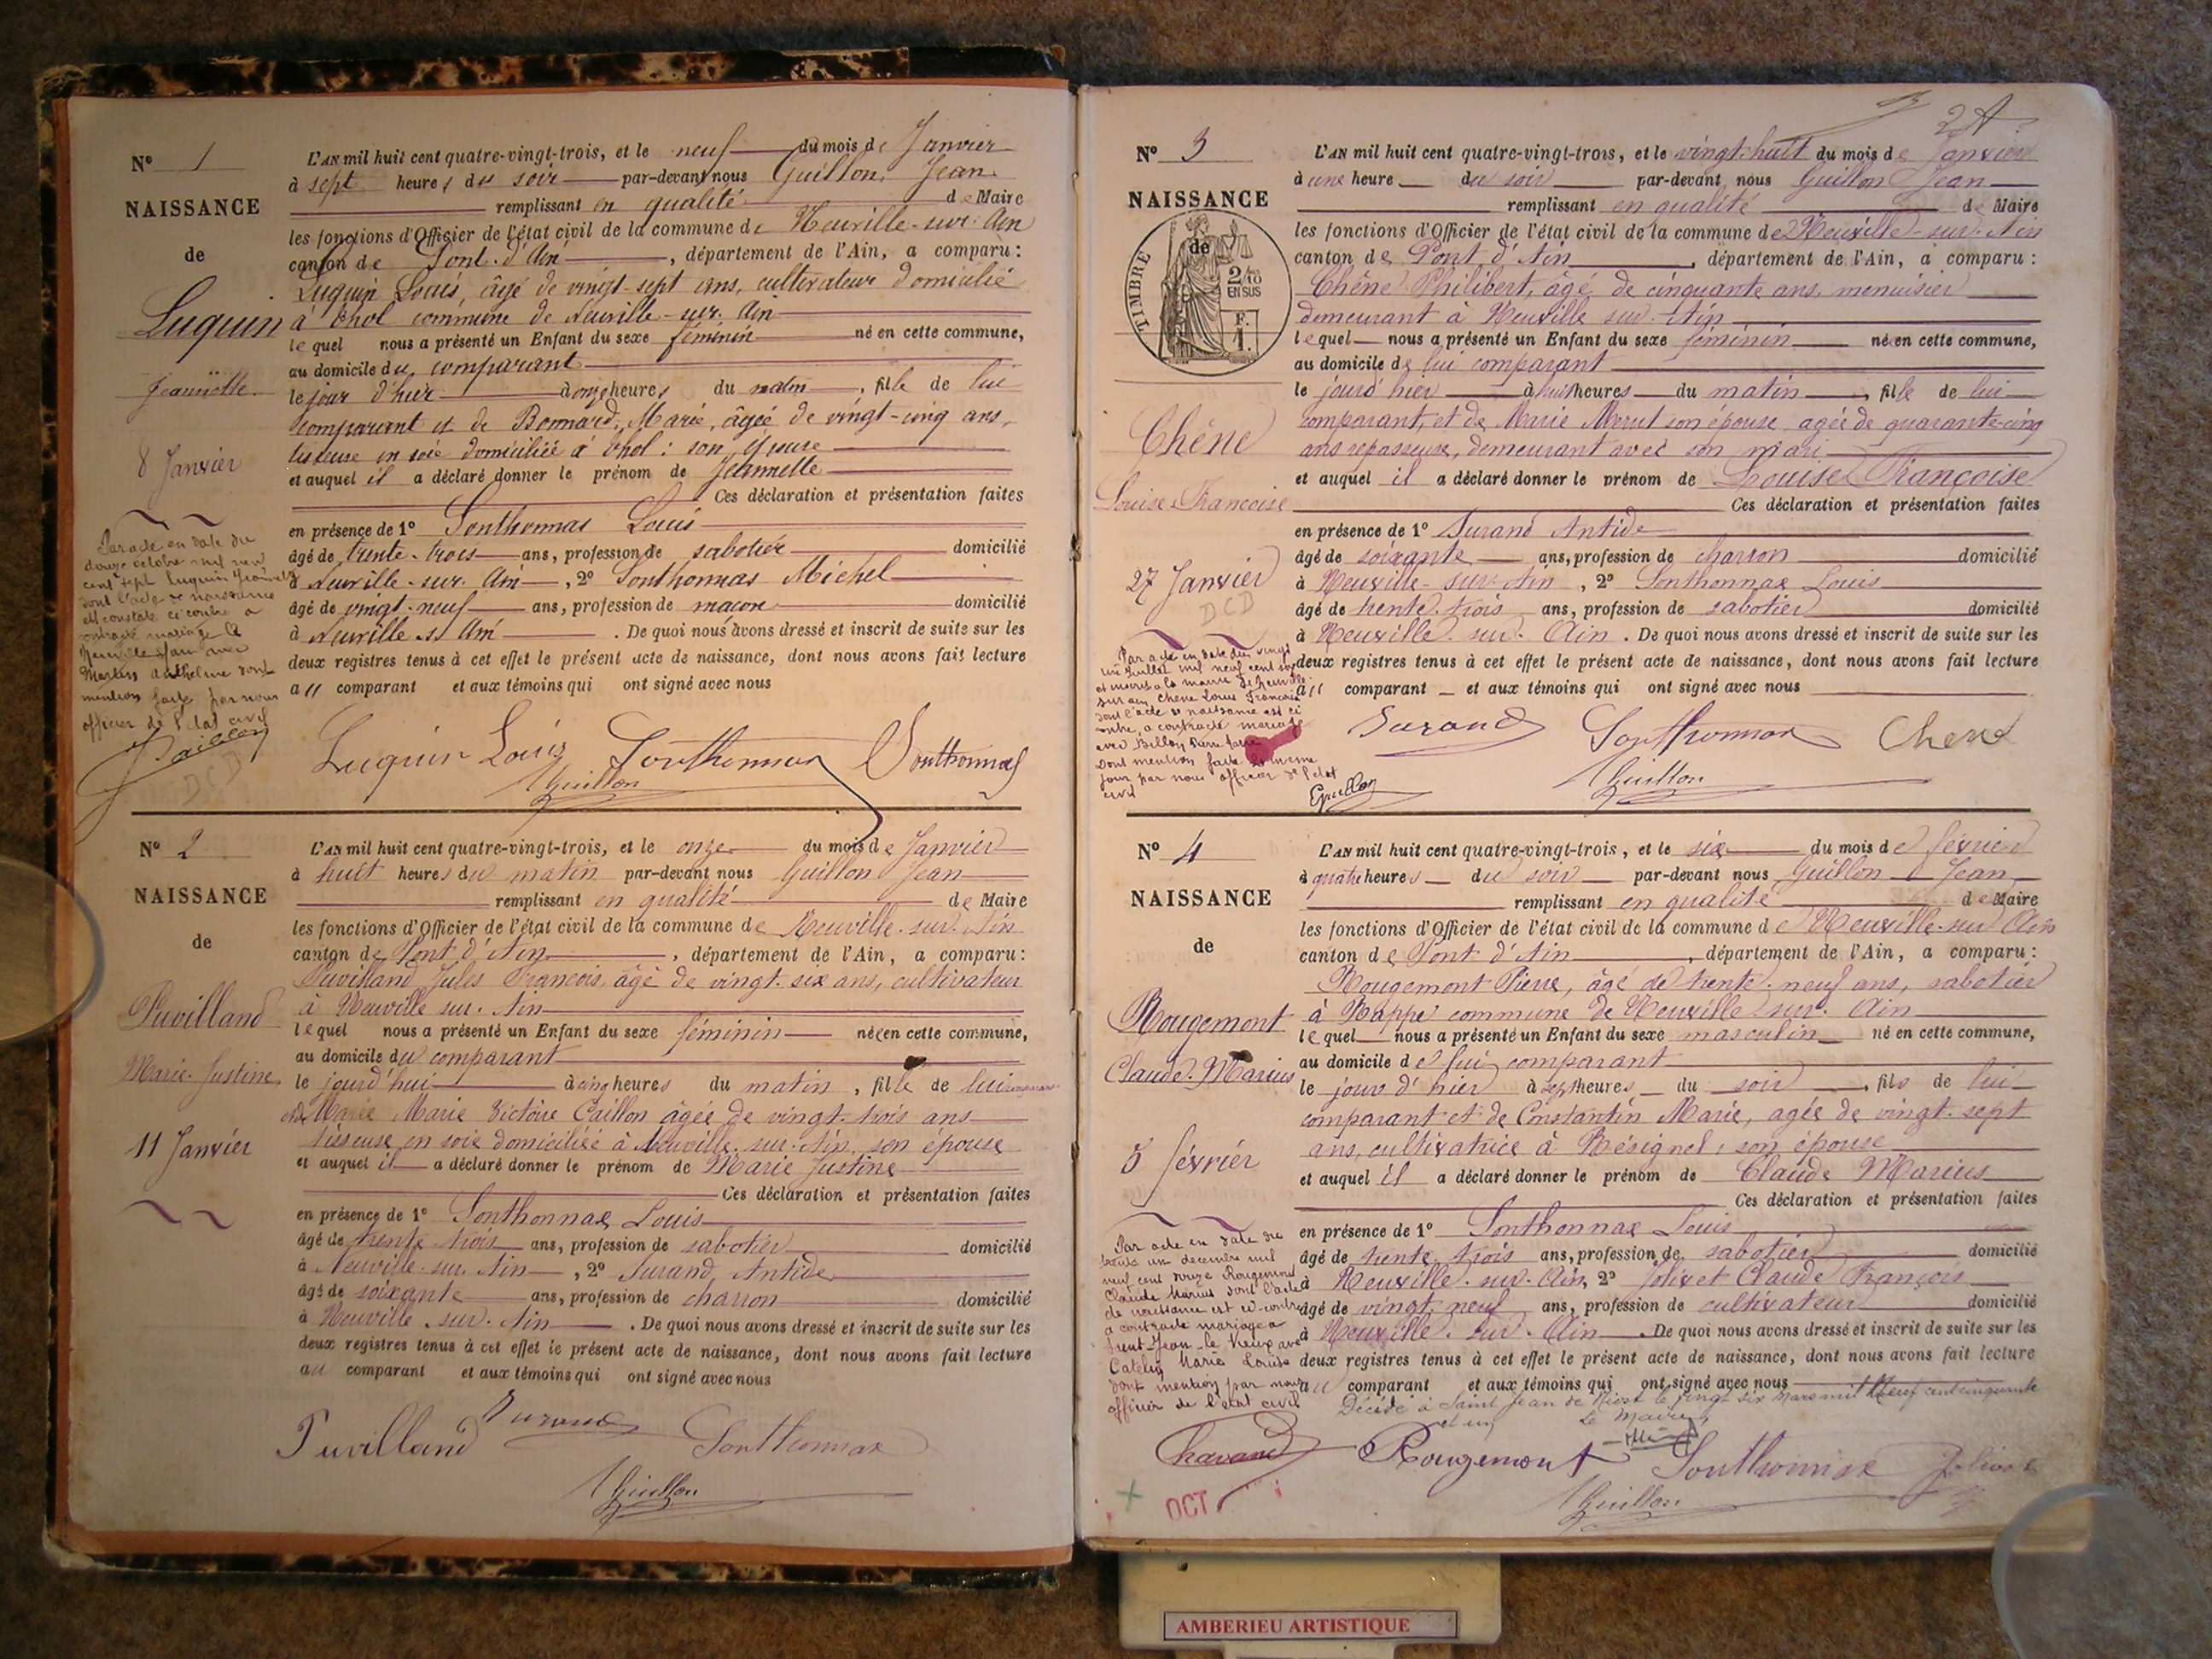 N° 1
NAISSANCE
de
Luquin
Jeannette
8 Janvier
L'AN mil huit cent quatre-vingt-trois, et le neuf du mois de Janvier
à sept heures du soir par-devant nous Guillon Jean
remplissant en qualité de Maire
les fonctions d'Officier de l'état civil de la commune de Neuville-sur-Ain
canton de Pont-d'Ain, département de l'Ain, a comparu:
Luquin Louis, âgé de vingt-sept ans, cultivateur domicilié
à Thol commune de Neuville-sur-Ain
lequel nous a présenté un Enfant du sexe féminin né en cette commune,
au domicile du comparant
le jour d'hier à onze heures du matin, fille de lui
comparant et de Bonnard, Marie, âgée de vingt-cinq ans,
tisseuse en soie domiciliée à Thol: son épouse
et auquel il a déclaré donner le prénom de Jeannette
Ces déclaration et présentation faites
en présence de 1° Sonthonnax Louis
âgé de trente-trois ans, profession de sabotier domicilié
à Neuville-sur-Ain, 2° Sonthonnax Michel
âgé de vingt-neuf ans, profession de maçon domicilié
à Neuville s. Ain. De quoi nous avons dressé et inscrit de suite sur les
deux registres tenus à cet effet le présent acte de naissance, dont nous avons fait lecture
au comparant et aux témoins qui ont signé avec nous
Par acte en date du
douze octobre mil neuf
cent sept Luquin Jeannette
dont l'acte de naissance
est constaté ci contre a
contracté mariage à
Neuville s/ain avec
anthelme dont
mention faite par nous
officier de l'état civil
DCD
Luquin Louis Sonthonnax Sonthonnax
Guillon
N° 2
NAISSANCE
de
Puvilland
Marie-Justine
11 Janvier
L'AN mil huit cent quatre-vingt-trois, et le onze du mois de Janvier
à huit heures du matin par-devant nous Guillon Jean
remplissant en qualité de Maire
les fonctions d'Officier de l'état civil de la commune de Neuville-sur-Ain
canton de Pont d'Ain, département de l'Ain, a comparu:
Puvilland Jules François, âgé de vingt-six ans, cultivateur
à Neuville sur-Ain
lequel nous a présenté un Enfant du sexe féminin née en cette commune,
au domicile du comparant
le jourd'hui à cinq heures du matin, fille de lui comparant
Marie Victoire Caillon âgée de vingt-trois ans
tisseuse en soie domiciliée à Neuville-sur-Ain, son épouse
et auquel il a déclaré donner le prénom de Marie Justine
Ces déclaration et présentation faites
en présence de 1° Sonthonnax Louis
âgé de trente-trois ans, profession de sabotier domicilié
à Neuville-sur-Ain, 2° Durand Antide
âgé de soixante ans, profession de charron domicilié
à Neuville-sur-Ain. De quoi nous avons dressé et inscrit de suite sur les
deux registres tenus à cet effet le présent acte de naissance, dont nous avons fait lecture
au comparant et aux témoins qui ont signé avec nous
Puvilland Durand Sonthonnax
Guillon
N° 3
NAISSANCE
de
TIMBRE
2/10
EN SUS
F.
1.
Chêne
Louise Françoise
27 Janvier
DCD
L'AN mil huit cent quatre-vingt-trois, et le vingt-huit du mois de Janvier
à une heure du soir par-devant nous Guillon Jean
remplissant en qualité de Maire
les fonctions d'Officier de l'état civil de la commune de Neuville-sur-Ain
canton de Pont d'Ain, département de l'Ain, a comparu:
Chêne Philibert, âgé de cinquante ans, menuisier
demeurant à Neuville sur-Ain
lequel nous a présenté un Enfant du sexe féminin née en cette commune,
au domicile de lui comparant
le jourd'hier à huit heures du matin, fille de lui
comparant, et de Marie son épouse, agée de quarante-cinq
ans repasseuse, demeurant avec son mari
et auquel il a déclaré donner le prénom de Louise Françoise
Ces déclaration et présentation faites
en présence de 1° Durand Antide
âgé de soixante ans, profession de charron domicilié
à Neuville-sur-Ain, 2° Sonthonnax Louis
âgé de trente-trois ans, profession de sabotier domicilié
à Neuville-sur-Ain. De quoi nous avons dressé et inscrit de suite sur les
deux registres tenus à cet effet le présent acte de naissance, dont nous avons fait lecture
au comparant et aux témoins qui ont signé avec nous
Par acte en date du vingt
juillet mil neuf cent
a la mairie de Neuville
sur ain Chene Louise Françoise
dont l'acte de naissance est ci
contre, a contracté mariage
avec Billon Pierre
dont mention faite le meme
jour par nous officier de l'état
civil
Durand Sonthonnax Chene
Guillon
N° 4
NAISSANCE
de
Rougemont
Claude-Marius
5 février
L'AN mil huit cent quatre-vingt-trois, et le six du mois de février
à quatre heures du soir par-devant nous Guillon Jean
remplissant en qualité de Maire
les fonctions d'Officier de l'état civil de la commune de Neuville-sur-Ain
canton de Pont d'Ain, département de l'Ain, a comparu:
Rougemont Pierre, âgé de trente-neuf ans, sabotier
à Rappe commune de Neuville-sur-Ain
lequel nous a présenté un Enfant du sexe masculin né en cette commune,
au domicile de lui comparant
le jour d'hier à sept heures du soir, fils de lui
comparant et de Constantin Marie, agée de vingt-sept
ans, cultivatrice à Résignel, son épouse
et auquel il a déclaré donner le prénom de Claude Marius
Ces déclaration et présentation faites
en présence de 1° Sonthonnax Louis
âgé de trente-trois ans, profession de sabotier domicilié
à Neuville-sur-Ain, 2° Jolivet Claude François
âgé de vingt-neuf ans, profession de cultivateur domicilié
à Neuville-sur-Ain. De quoi nous avons dressé et inscrit de suite sur les
deux registres tenus à cet effet le présent acte de naissance, dont nous avons fait lecture
au comparant et aux témoins qui ont signé avec nous
Par acte en date du
trente un decembre mil
neuf cent douze Rougemont
Claude Marius dont l'acte
de naissance est ci-contre
a contracté mariage a
Saint-Jean-le-Vieux avec
Catelin Marie Louise
dont mention par nous
officier de l'état civil
Décédé à Saint Jean de Niost le vingt six Mars mil Neuf cent cinquante
et un Le Maire
Chavand Rougemont Sonthonnax Jolivet
Guillon
OCT
AMBERIEU ARTISTIQUE